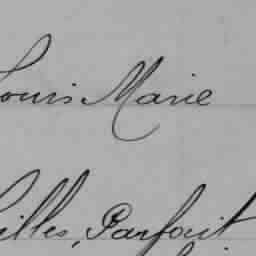 Louis Marie
Gilles, Parfait